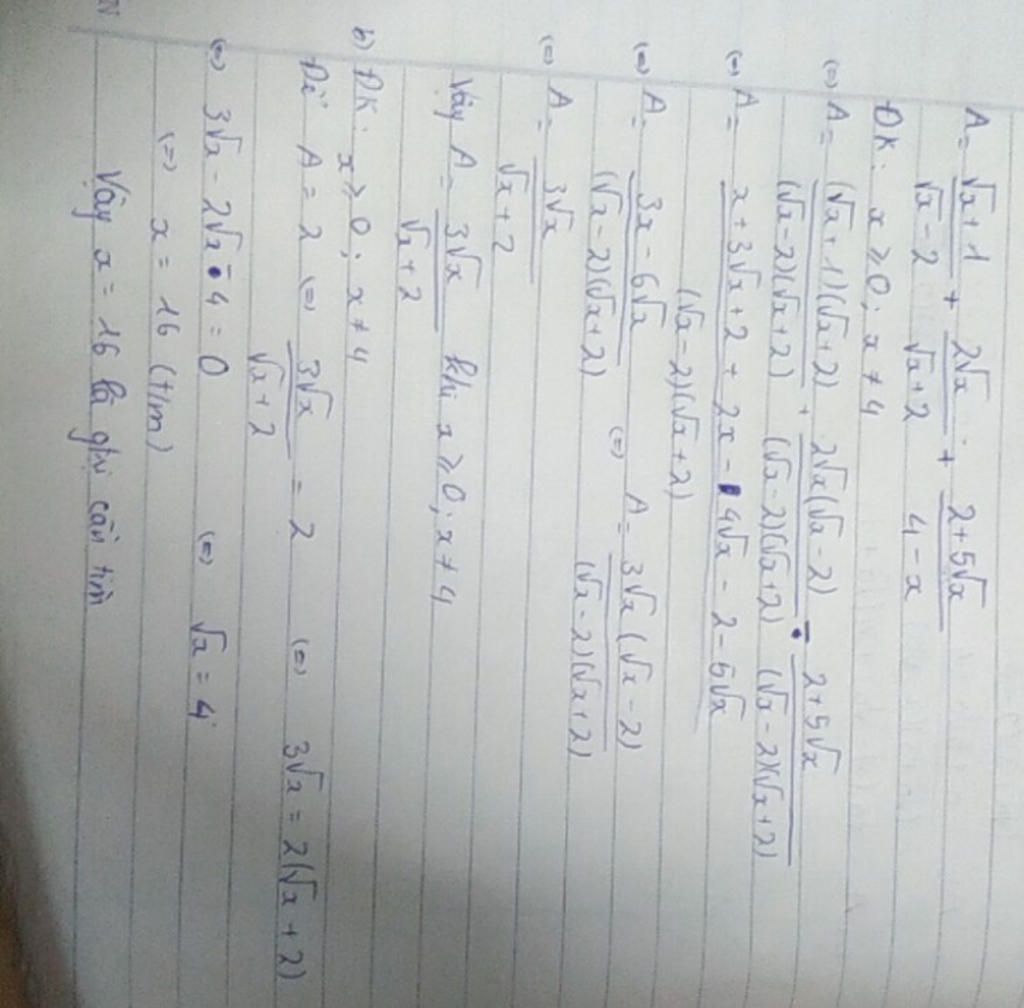 A = (√x + 1)/(√x - 2) + 2√x/(√x + 2) + (2 + 5√x)/(4 - x)
ĐK: x ≥ 0; x ≠ 4
(=) A = (√x + 1)(√x + 2)/(√x - 2)(√x + 2) + 2√x(√x - 2)/(√x - 2)(√x + 2) - (2 + 5√x)/(√x - 2)(√x + 2)
(=) A = (x + 3√x + 2 + 2x - 4√x - 2 - 5√x)/(√x - 2)(√x + 2)
(=) A = (3x - 6√x)/(√x - 2)(√x + 2) (=) A = 3√x(√x - 2)/(√x - 2)(√x + 2)
(=) A = 3√x/(√x + 2)
Vậy A = 3√x/(√x + 2) khi x ≥ 0; x ≠ 4
b) ĐK: x ≥ 0; x ≠ 4
Để A = 2 (=) 3√x/(√x + 2) = 2 (=) 3√x = 2(√x + 2)
(=) 3√x - 2√x - 4 = 0 (=) √x = 4
(=) x = 16 (t/m)
Vậy x = 16 là gtrị cần tìm
N